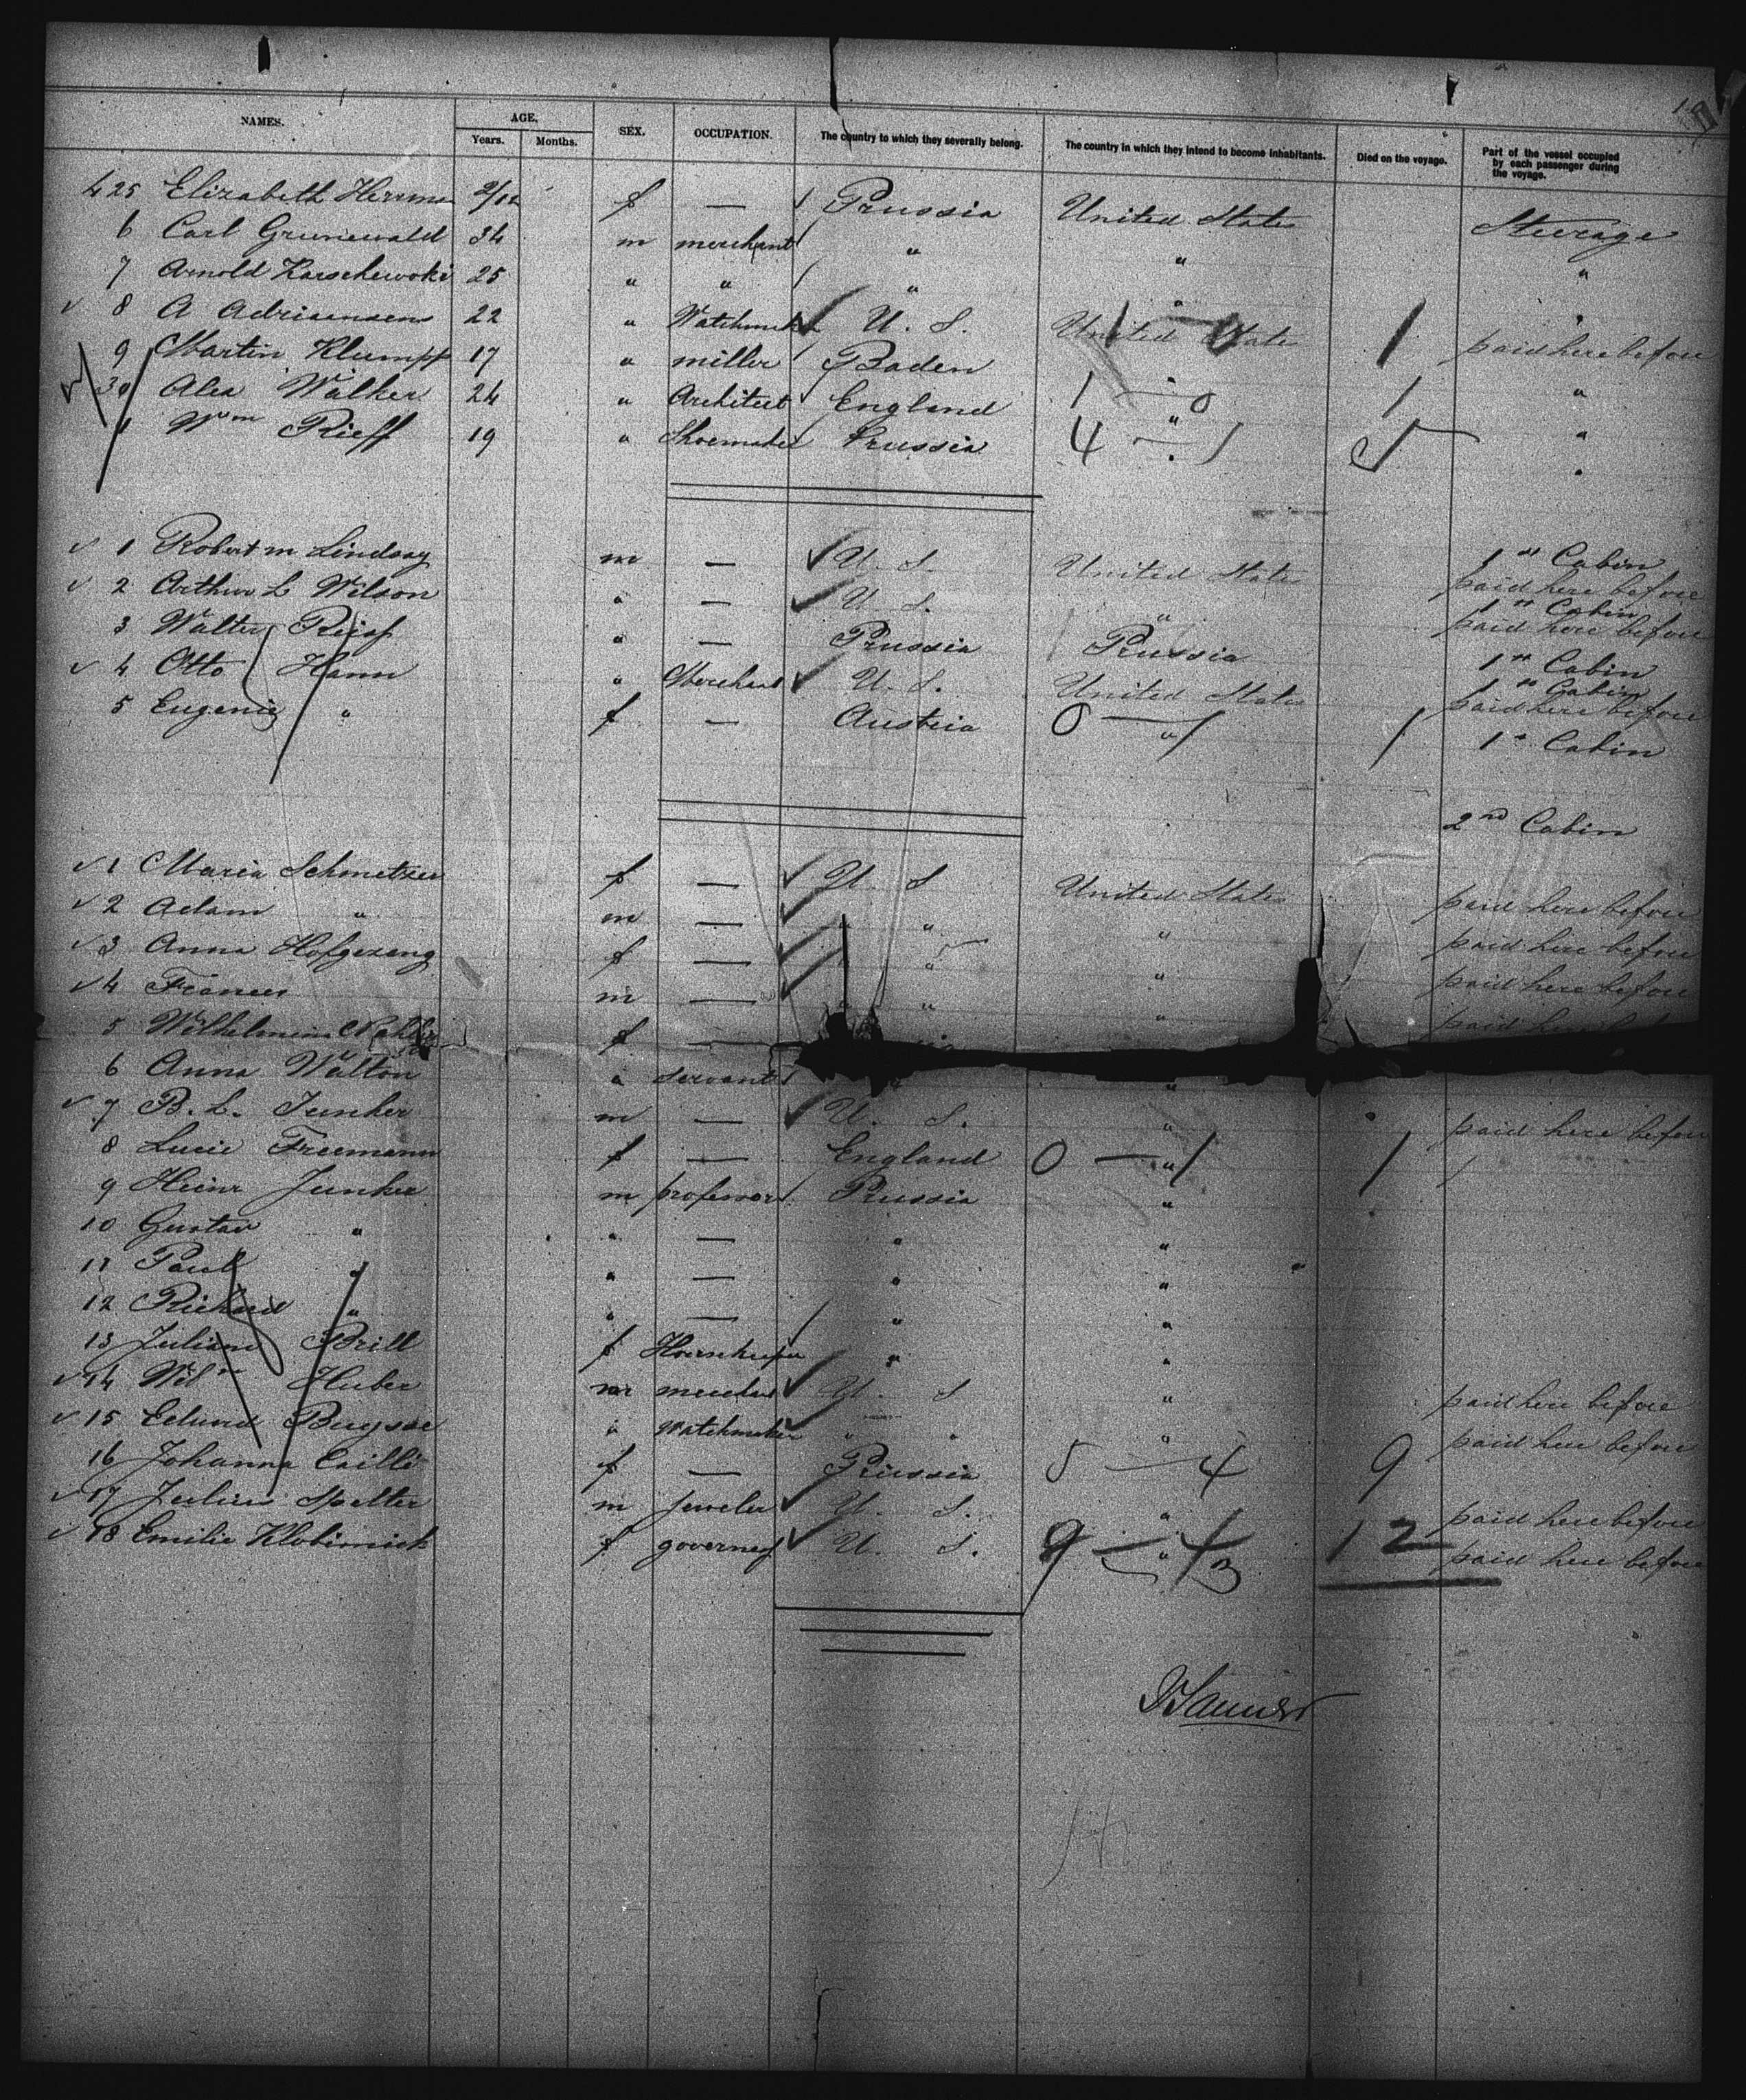 NAMES. AGE. Years. Months. SEX. OCCUPATION. The country to which they severally belong. The country in which they intend to become inhabitants. Died on the voyage. Part of the vessel occupied by each passenger during the voyage.
425 Elizabeth Herrma 2/12 f — Prussia United States Steerage
6 Carl Grunewald 34 m merchant " " "
7 Arnold 25 " " " " "
8 A Adriaensen 22 " Watchmaker U. S. United States paid here before
9 Martin Klumpp 17 " miller Baden " "
30 Alex Walker 24 " Architect England " "
1 Wm Rieff 19 " Shoemaker Prussia " "
1 Robert m Lindsay m — U. S. United States 1st Cabin paid here before
2 Arthur L Wilson " — U. S. " 1st Cabin paid here before
3 Walter " — Prussia Prussia 1st Cabin
4 Otto Hann " Merchant U. S. United States 1st Cabin paid here before
5 Eugenie " f — Austria " 1st Cabin
2nd Cabin
1 Maria Schmetzer f — U S United States paid here before
2 Adam " m — " " " paid here before
3 Anna Hofgezang f — " " " paid here before
4 Frances m — " " " paid
5 Wilhelmin f —
6 Anna Walton " servant " "
7 B. L. Junker m — U. S. " paid here before
8 Lucie Freemann f — England 0 — 1 1
9 Heinr Junker m professor Prussia "
10 Gustav " " — " "
11 Paul " " — " "
12 Richard " " — " "
13 Juliane Brill f " "
14 Wilm Huber m merchant U. S "
paid here before
15 Edward " Watchmaker " " " paid here before
16 Johanna Caille f — Prussia 5 — 4 9
17 Julius Spelter m Jeweler U. S. " paid here before
18 Emilie f governess U. S. 9 — 12 paid here before